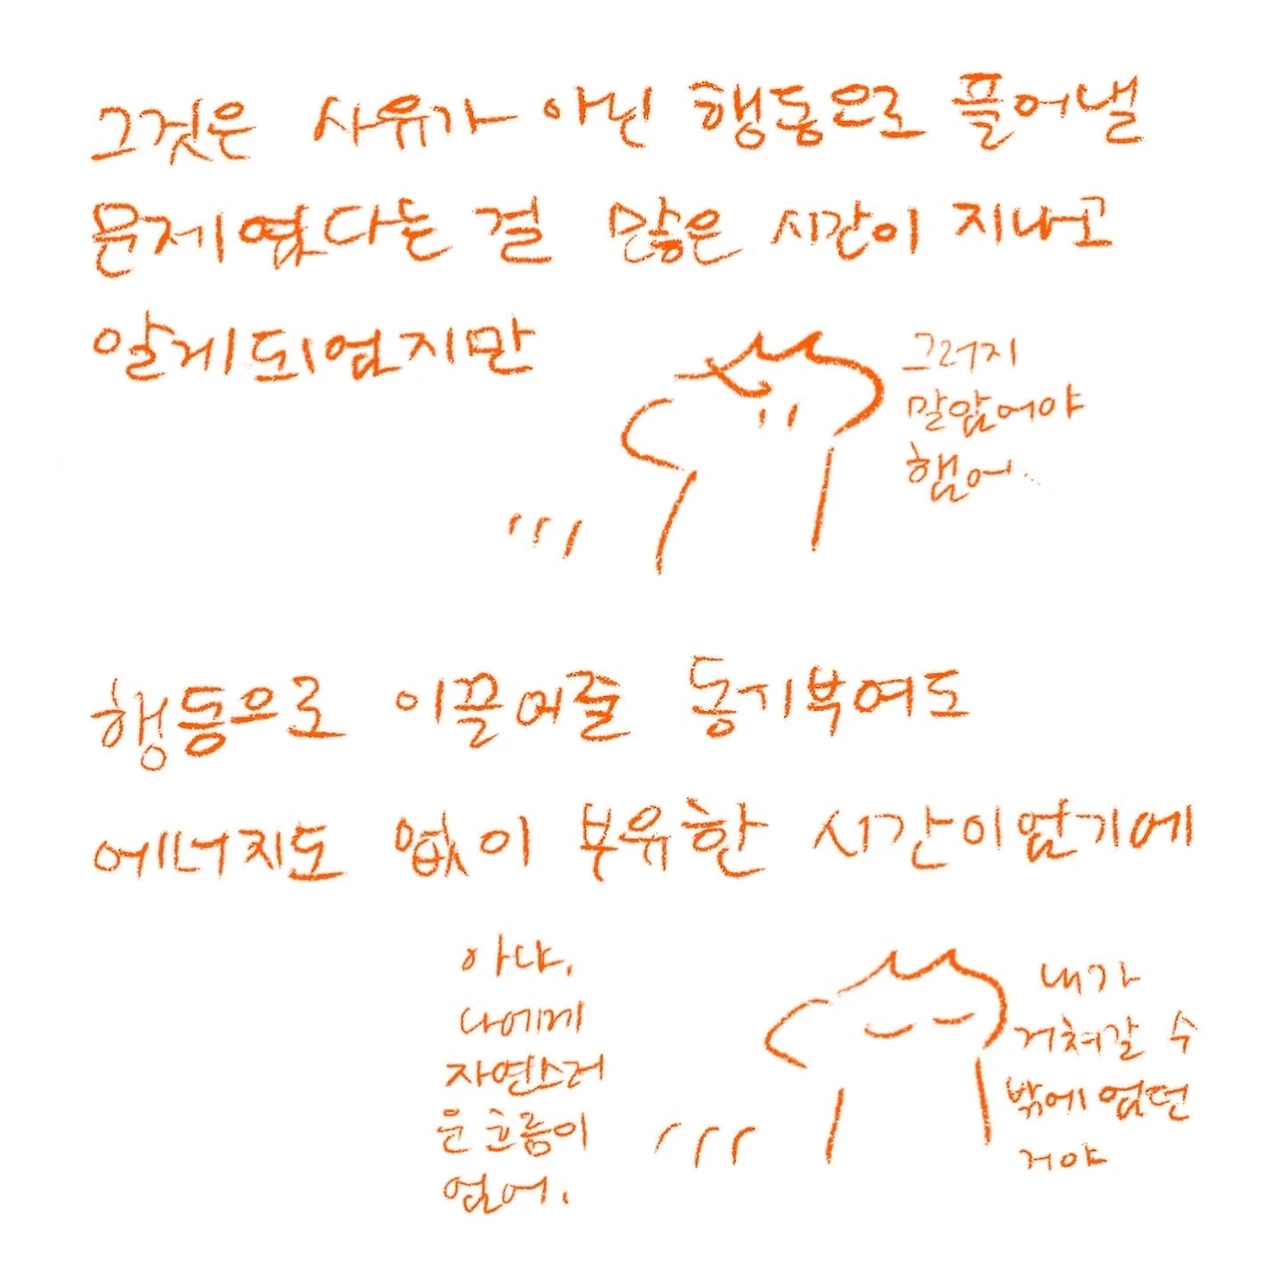 그것은 사유가 아닌 행동으로 풀어낼
문제였다는 걸 많은 시간이 지나고
알게되었지만
그러지
말았어야
했어..
행동으로 이끌어줄 동기부여도
에너지도 없이 부유한 시간이었기에
아냐.
나에게
자연스러
운 흐름이
었어.
내가
거쳐갈 수
밖에 없던
거야